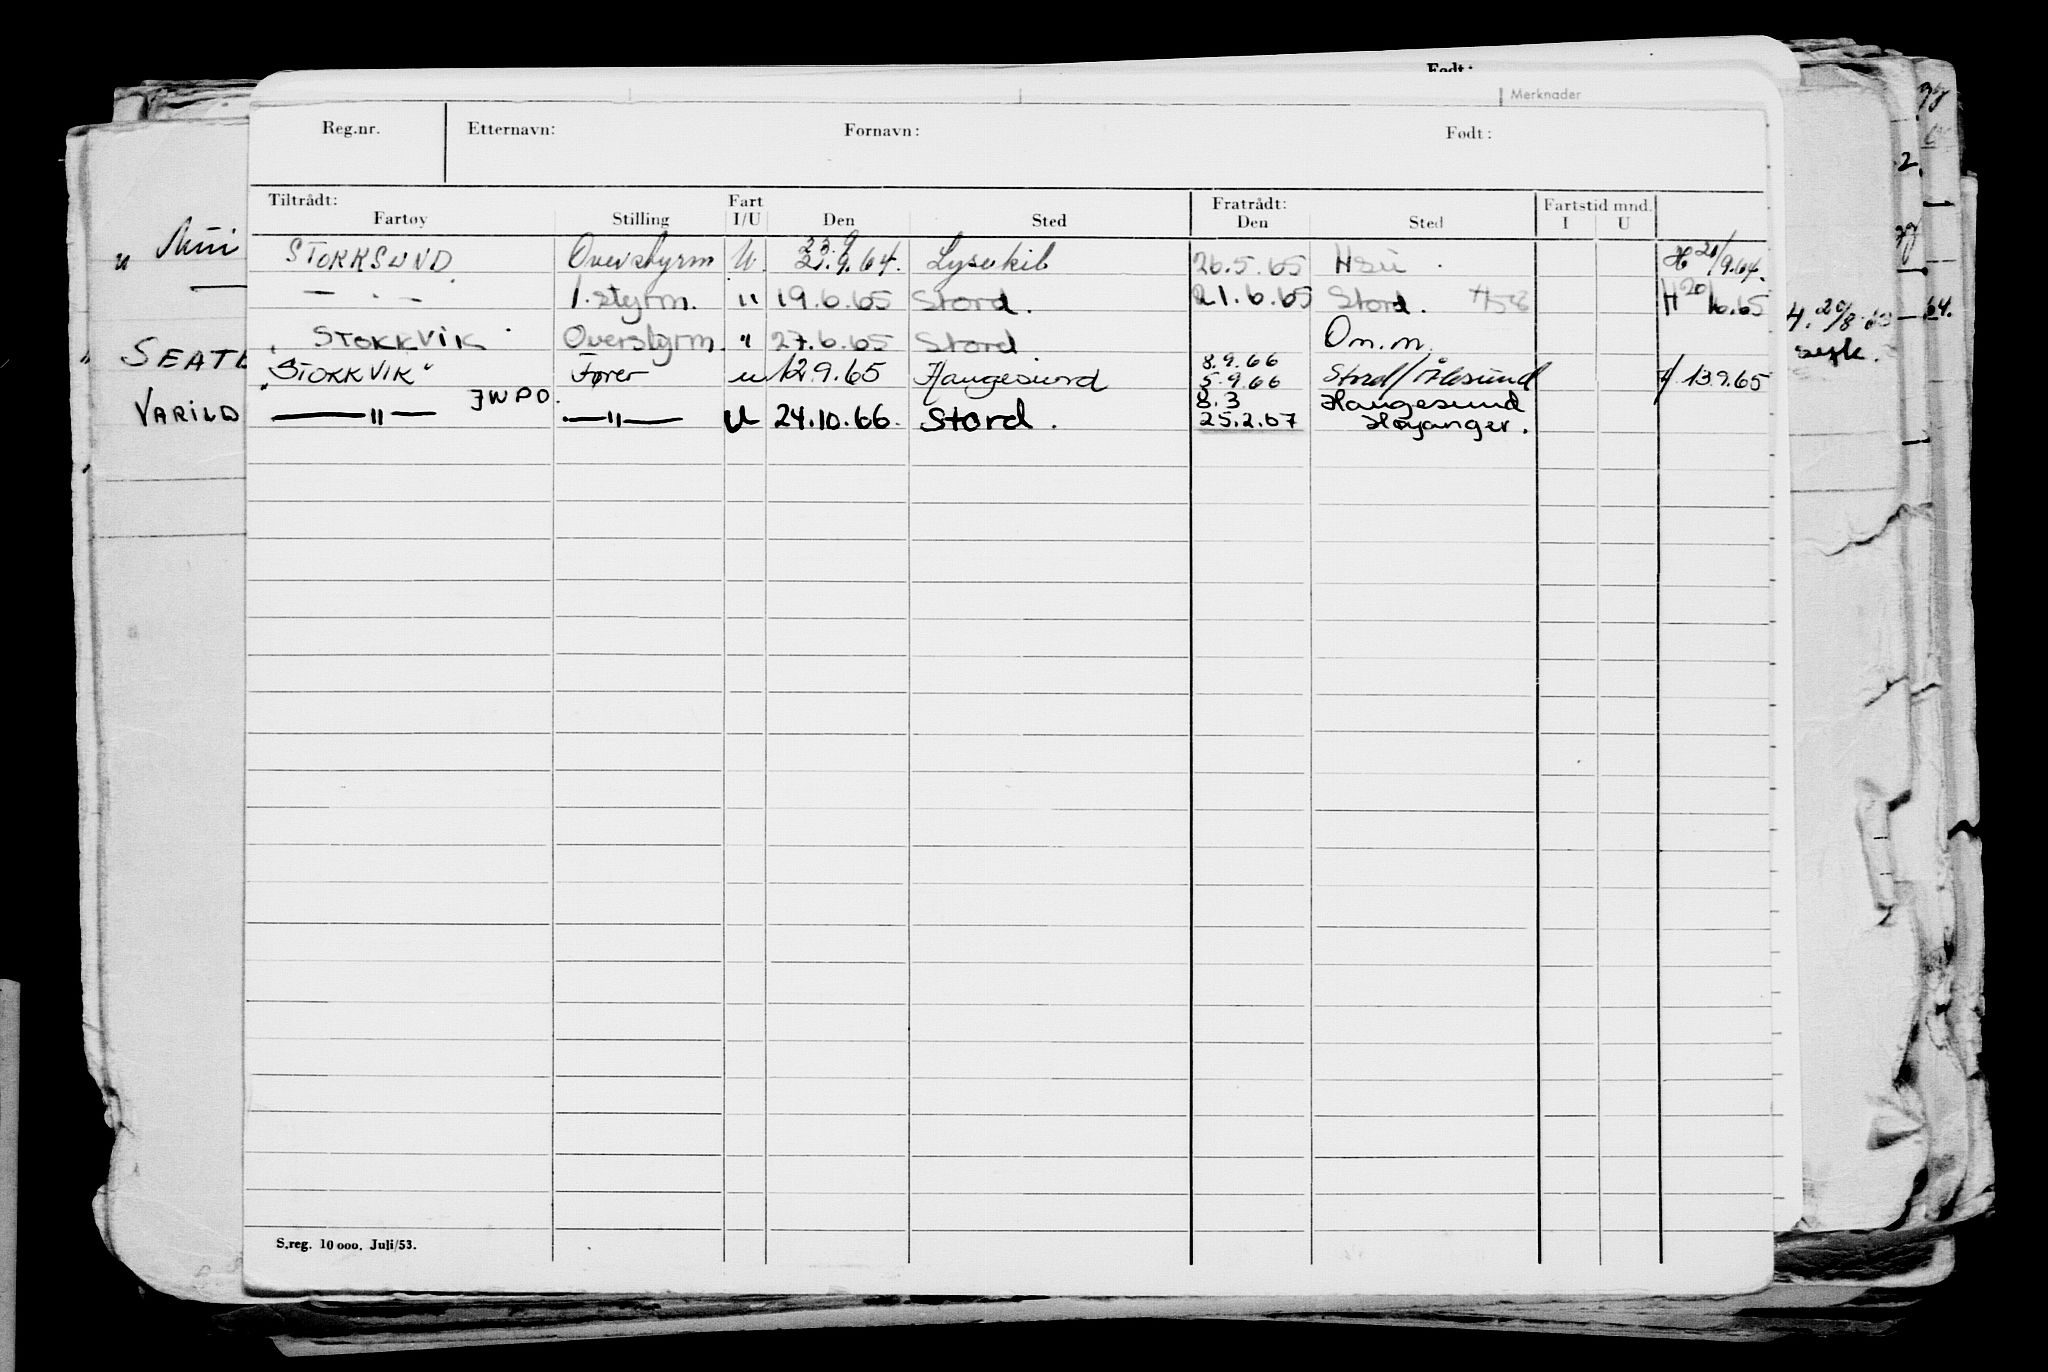 Født:
Merknader
Reg.nr. Etternavn: Fornavn: Født:
Tiltrådt: Fart Fratrådt: Fartstid mnd.
Fartøy Stilling I/U Den Sted Den Sted I U
23.9
STOKKSUND Overstyrm U. 21.9.64. Lysekil 26.5.65 H 20/9.64.
— " — 1. styrm. " 19.6.65 Stord. 21.6.65 Stord. H 20/6.65
STOKKVIK Overstyrm. " 27.6.65 Stord Om.m.
8.9.66
"STOKKVIK" Fører u 12.9.65 Haugesund 5.9.66 Stord/Ålesund 13.9.65
JWPO. 8.3 Haugesund
— " — — " — U 24.10.66. Stord. 25.2.67 Høyanger.
SEATE
VARILD
H. 20/8.63
64.
S.reg. 10 000. Juli/53.